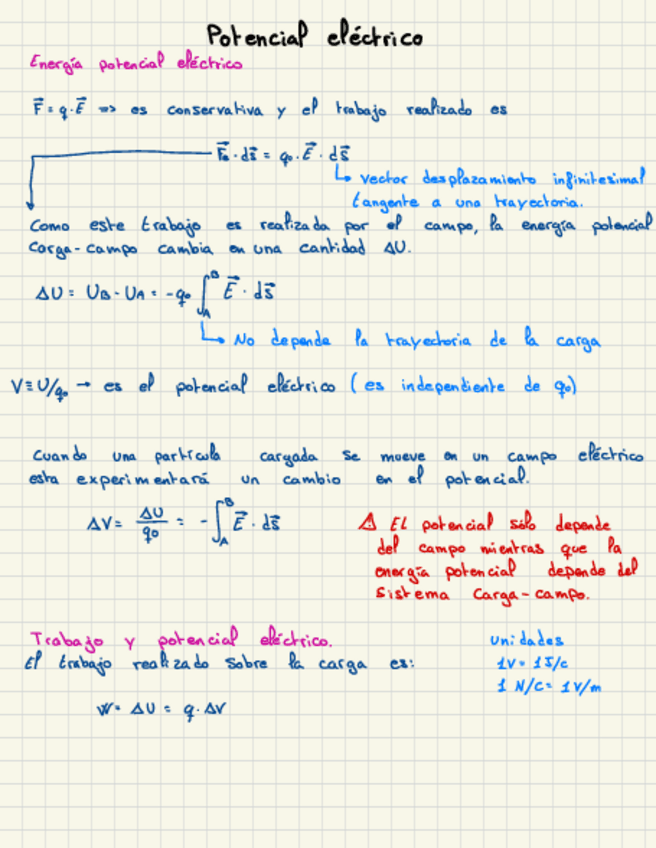 Potencial eléctrico
Energía potencial eléctrico
F⃗ = q·E⃗ => es conservativa y el trabajo realizado es
F⃗e·ds⃗ = q₀·E⃗·ds⃗
↳ vector desplazamiento infinitesimal
tangente a una trayectoria.
Como este trabajo es realizada por el campo, la energía potencial
Carga-campo cambia en una cantidad ΔU.
ΔU = UB - UA = -q₀ ∫_A^B E⃗·ds⃗
↳ No depende la trayectoria de la carga
V≡U/q₀ → es el potencial eléctrico (es independiente de q₀)
Cuando una partícula cargada se mueve en un campo eléctrico
esta experimentará un cambio en el potencial.
ΔV = ΔU/q₀ = -∫_A^B E⃗·ds⃗
⚠ El potencial sólo depende
del campo mientras que la
energía potencial depende del
Sistema Carga-campo.
Trabajo y potencial eléctrico.
El trabajo realizado sobre la carga es:
W = ΔU = q·ΔV
Unidades
1V = 1J/C
1 N/C = 1V/m